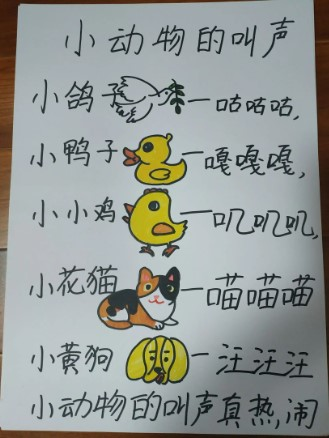 小动物的叫声
小鸽子一咕咕咕,
小鸭子一嘎嘎嘎,
小小鸡一叽叽叽,
小花猫一喵喵喵
小黄狗一汪汪汪
小动物的叫声真热闹